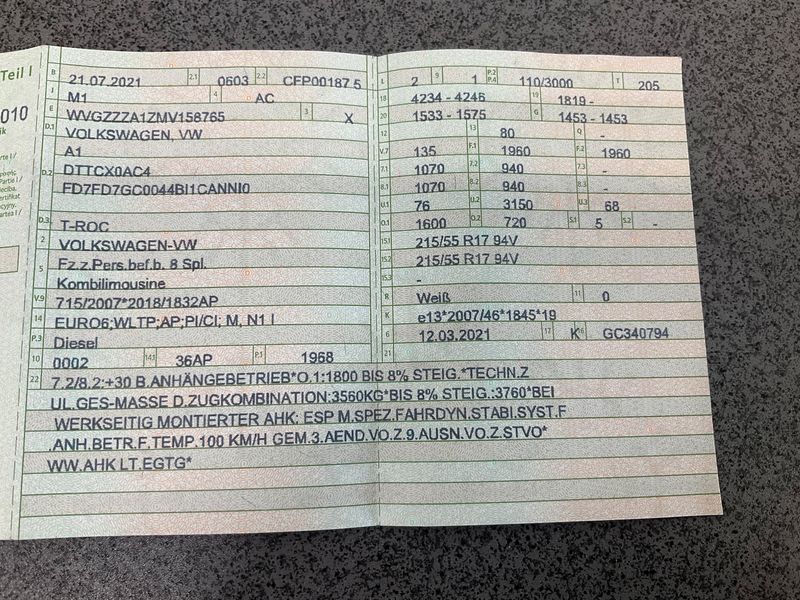 Teil I
010
B 21.07.2021 2.1 0603 2.2 CFP00187 5
J M1 4 AC
E WVGZZZA1ZMV158765 3 X
D.1 VOLKSWAGEN, VW
A1
D.2 DTTCX0AC4
FD7FD7GC0044BI1CANNI0
D.3 T-ROC
2 VOLKSWAGEN-VW
5 Fz.z.Pers.bef.b. 8 Spl.
Kombilimousine
V.9 715/2007*2018/1832AP
14 EURO6;WLTP;AP;PI/CI; M, N1 I
P.3 Diesel
10 0002 14.1 36AP P.1 1968
L 2 9 1 P.2 P.4 110/3000 T 205
18 4234 - 4246 19 1819 -
20 1533 - 1575 G 1453 - 1453
12 - 13 80 Q -
V.7 135 F.1 1960 F.2 1960
7.1 1070 7.2 940 7.3 -
8.1 1070 8.2 940 8.3 -
U.1 76 U.2 3150 U.3 68
O.1 1600 O.2 720 S.1 5 S.2 -
15.1 215/55 R17 94V
15.2 215/55 R17 94V
15.3 -
R Weiß 11 0
K e13*2007/46*1845*19
6 12.03.2021 17 K 16 GC340794
21
22 7.2/8.2:+30 B.ANHÄNGEBETRIEB*O.1:1800 BIS 8% STEIG.*TECHN.Z
UL.GES-MASSE D.ZUGKOMBINATION:3560KG*BIS 8% STEIG.:3760*BEI
WERKSEITIG MONTIERTER AHK: ESP M.SPEZ.FAHRDYN.STABI.SYST.F
.ANH.BETR.F.TEMP.100 KM/H GEM.3.AEND.VO.Z.9.AUSN.VO.Z.STVO*
WW.AHK LT.EGTG*